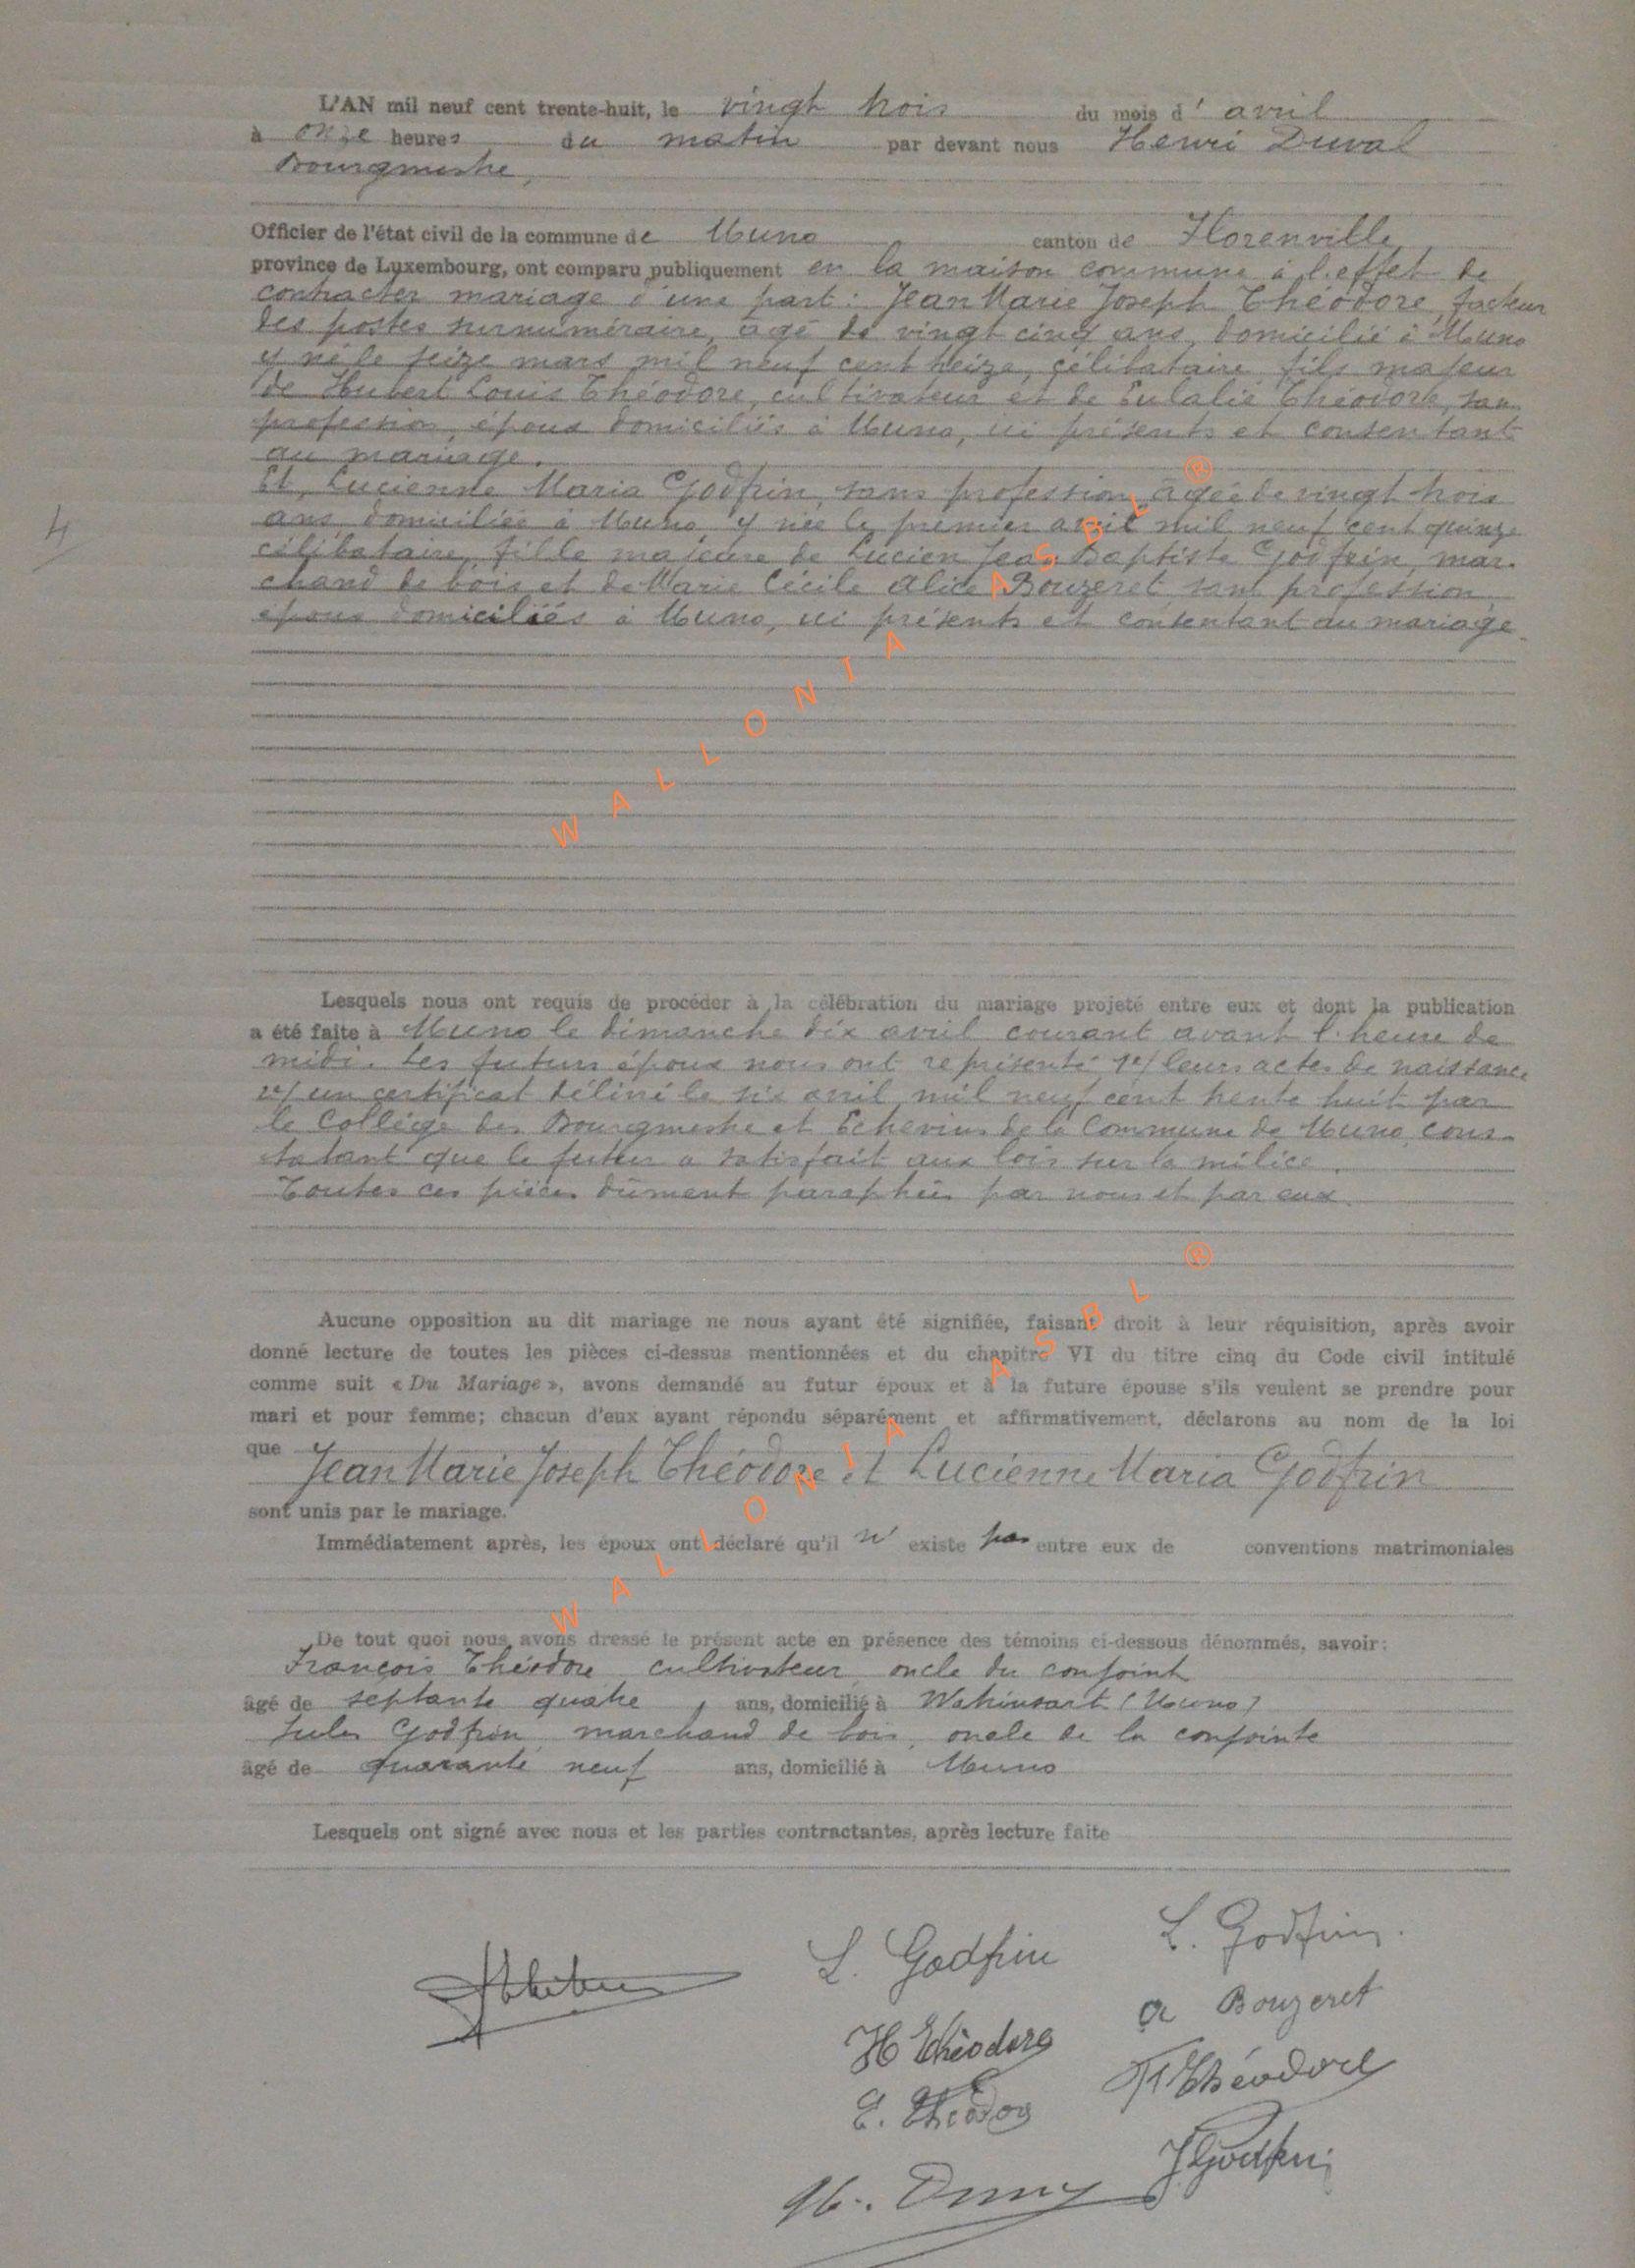 L'AN mil neuf cent trente-huit, le vingt trois du mois d' avril
à onze heures du matin par devant nous Henri Duval
Bourgmestre,
Officier de l'état civil de la commune de Muno canton de Florenville
province de Luxembourg, ont comparu publiquement en la maison commune à l'effet de
contracter mariage d'une part : Jean Marie Joseph Théodore, facteur
des postes surnuméraire, âgé de vingt cinq ans, domicilié à Muno
y né le seize mars mil neuf cent treize, célibataire, fils majeur
de Hubert Louis Théodore, cultivateur et de Eulalie Théodore, sans
profession, époux domiciliés à Muno, ici présents et consentant
au mariage.
Et, Lucienne Maria Godfrin, sans profession, âgée de vingt trois
ans domiciliée à Muno y née le premier avril mil neuf cent quinze
célibataire, fille majeure de Lucien Jean Baptiste Godfrin, mar-
chand de bois et de Marie Cécile Alice Bouzeret, sans profession,
époux domiciliés à Muno, ici présents et consentant au mariage.
4
WALLONIA ASBL ®
Lesquels nous ont requis de procéder à la célébration du mariage projeté entre eux et dont la publication
a été faite à Muno le dimanche dix avril courant avant l'heure de
midi. Les futurs époux nous ont représenté 1°/ leurs actes de naissance
2°/ un certificat délivré le six avril mil neuf cent trente huit par
le Collège des Bourgmestre et Echevins de la Commune de Muno, cons-
tatant que le futur a satisfait aux lois sur la milice.
Toutes ces pièces dûment paraphées par nous et par eux.
WALLONIA ASBL ®
Aucune opposition au dit mariage ne nous ayant été signifiée, faisant droit à leur réquisition, après avoir
donné lecture de toutes les pièces ci-dessus mentionnées et du chapitre VI du titre cinq du Code civil intitulé
comme suit « Du Mariage », avons demandé au futur époux et à la future épouse s'ils veulent se prendre pour
mari et pour femme; chacun d'eux ayant répondu séparément et affirmativement, déclarons au nom de la loi
que Jean Marie Joseph Théodore et Lucienne Maria Godfrin
sont unis par le mariage.
Immédiatement après, les époux ont déclaré qu'il n' existe pas entre eux de conventions matrimoniales
De tout quoi nous avons dressé le présent acte en présence des témoins ci-dessous dénommés, savoir:
François Théodore cultivateur oncle du conjoint
âgé de septante quatre, ans, domicilié à Watrinsart (Muno)
Jules Godfrin, marchand de bois, oncle de la conjointe
âgé de quarante neuf ans, domicilié à Muno
Lesquels ont signé avec nous et les parties contractantes, après lecture faite
L. Godfrin L. Godfrin.
H Théodore a Bouzeret
E. Théodor F Théodore
J Godfrin